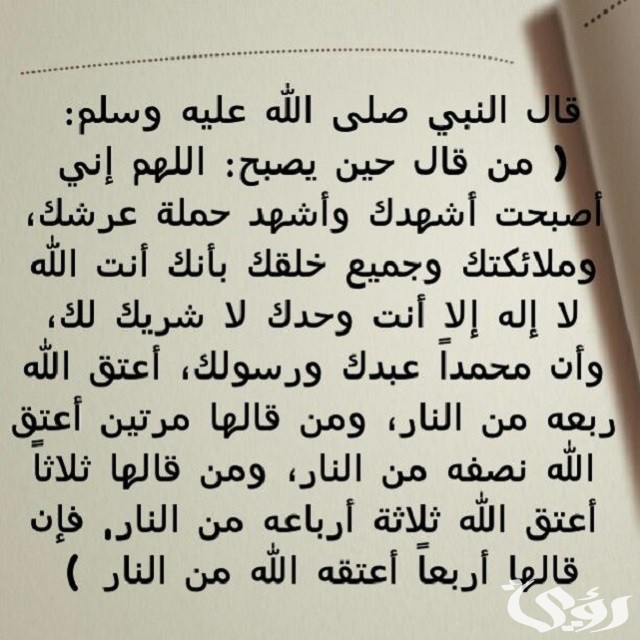 قال النبي صلى الله عليه وسلم:
( من قال حين يصبح: اللهم إني
أصبحت أشهدك وأشهد حملة عرشك،
وملائكتك وجميع خلقك بأنك أنت الله
لا إله إلا أنت وحدك لا شريك لك،
وأن محمداً عبدك ورسولك، أعتق الله
ربعه من النار، ومن قالها مرتين أعتق
الله نصفه من النار، ومن قالها ثلاثاً
أعتق الله ثلاثة أرباعه من النار, فإن
قالها أربعاً أعتقه الله من النار )
رؤى